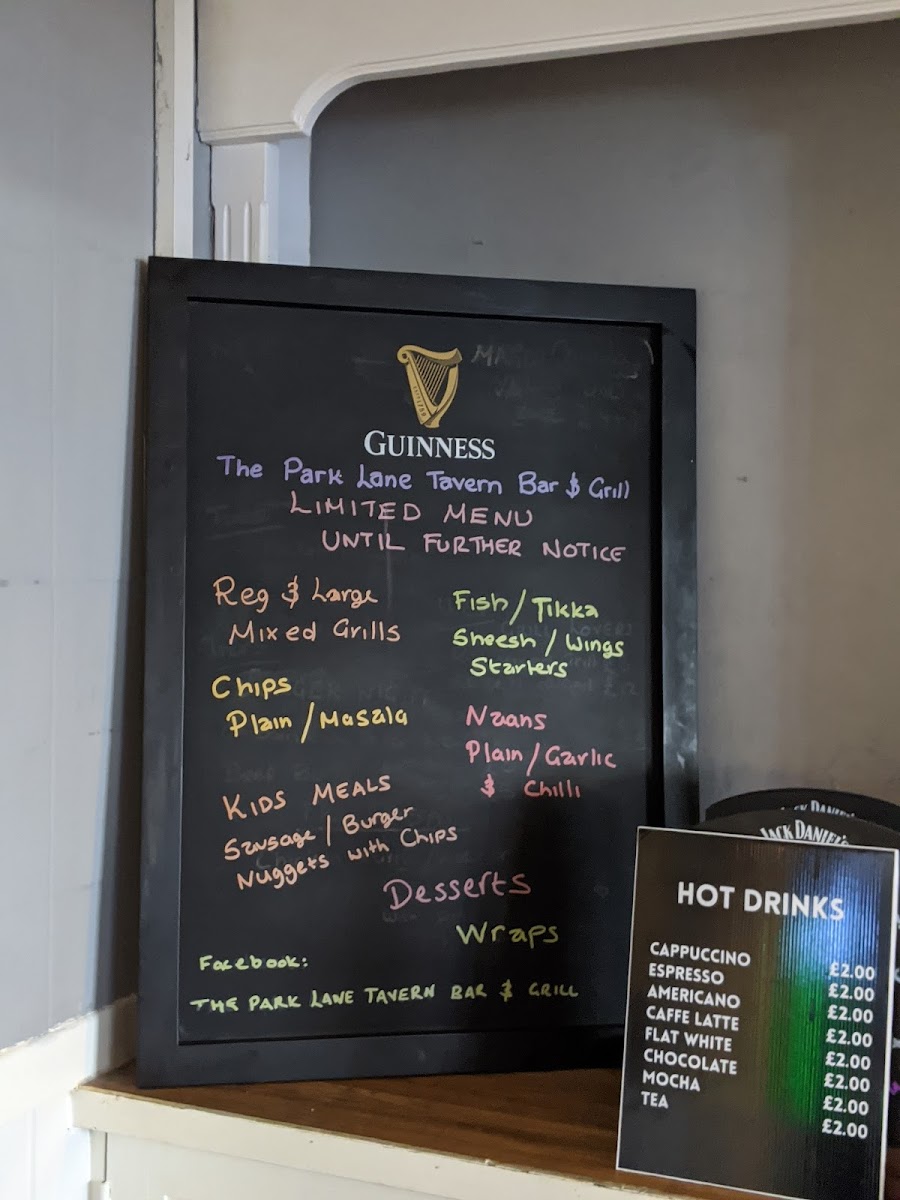 GUINNESS
The Park Lane Tavern Bar & Grill
LIMITED MENU
UNTIL FURTHER NOTICE
Reg & Large
Mixed Grills
Chips
Plain / Masala
KIDS MEALS
Sausage / Burger
Nuggets with Chips
Fish / Tikka
Sheesh / Wings
Starters
Naans
Plain / Garlic
& Chilli
Desserts
Wraps
Facebook:
THE PARK LANE TAVERN BAR & GRILL
JACK DANIEL'S
JACK DANIEL'S
HOT DRINKS
CAPPUCCINO £2.00
ESPRESSO £2.00
AMERICANO £2.00
CAFFE LATTE £2.00
FLAT WHITE £2.00
CHOCOLATE £2.00
MOCHA £2.00
TEA £2.00